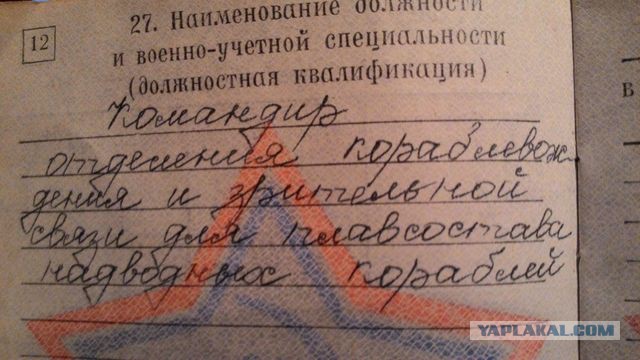 12
27. Наименование должности
и военно-учетной специальности
(должностная квалификация)
в
Командир
отделения кораблевож
дения и зрительной
связи для плавсостава
надводных кораблей
YAPLAKAL.COM